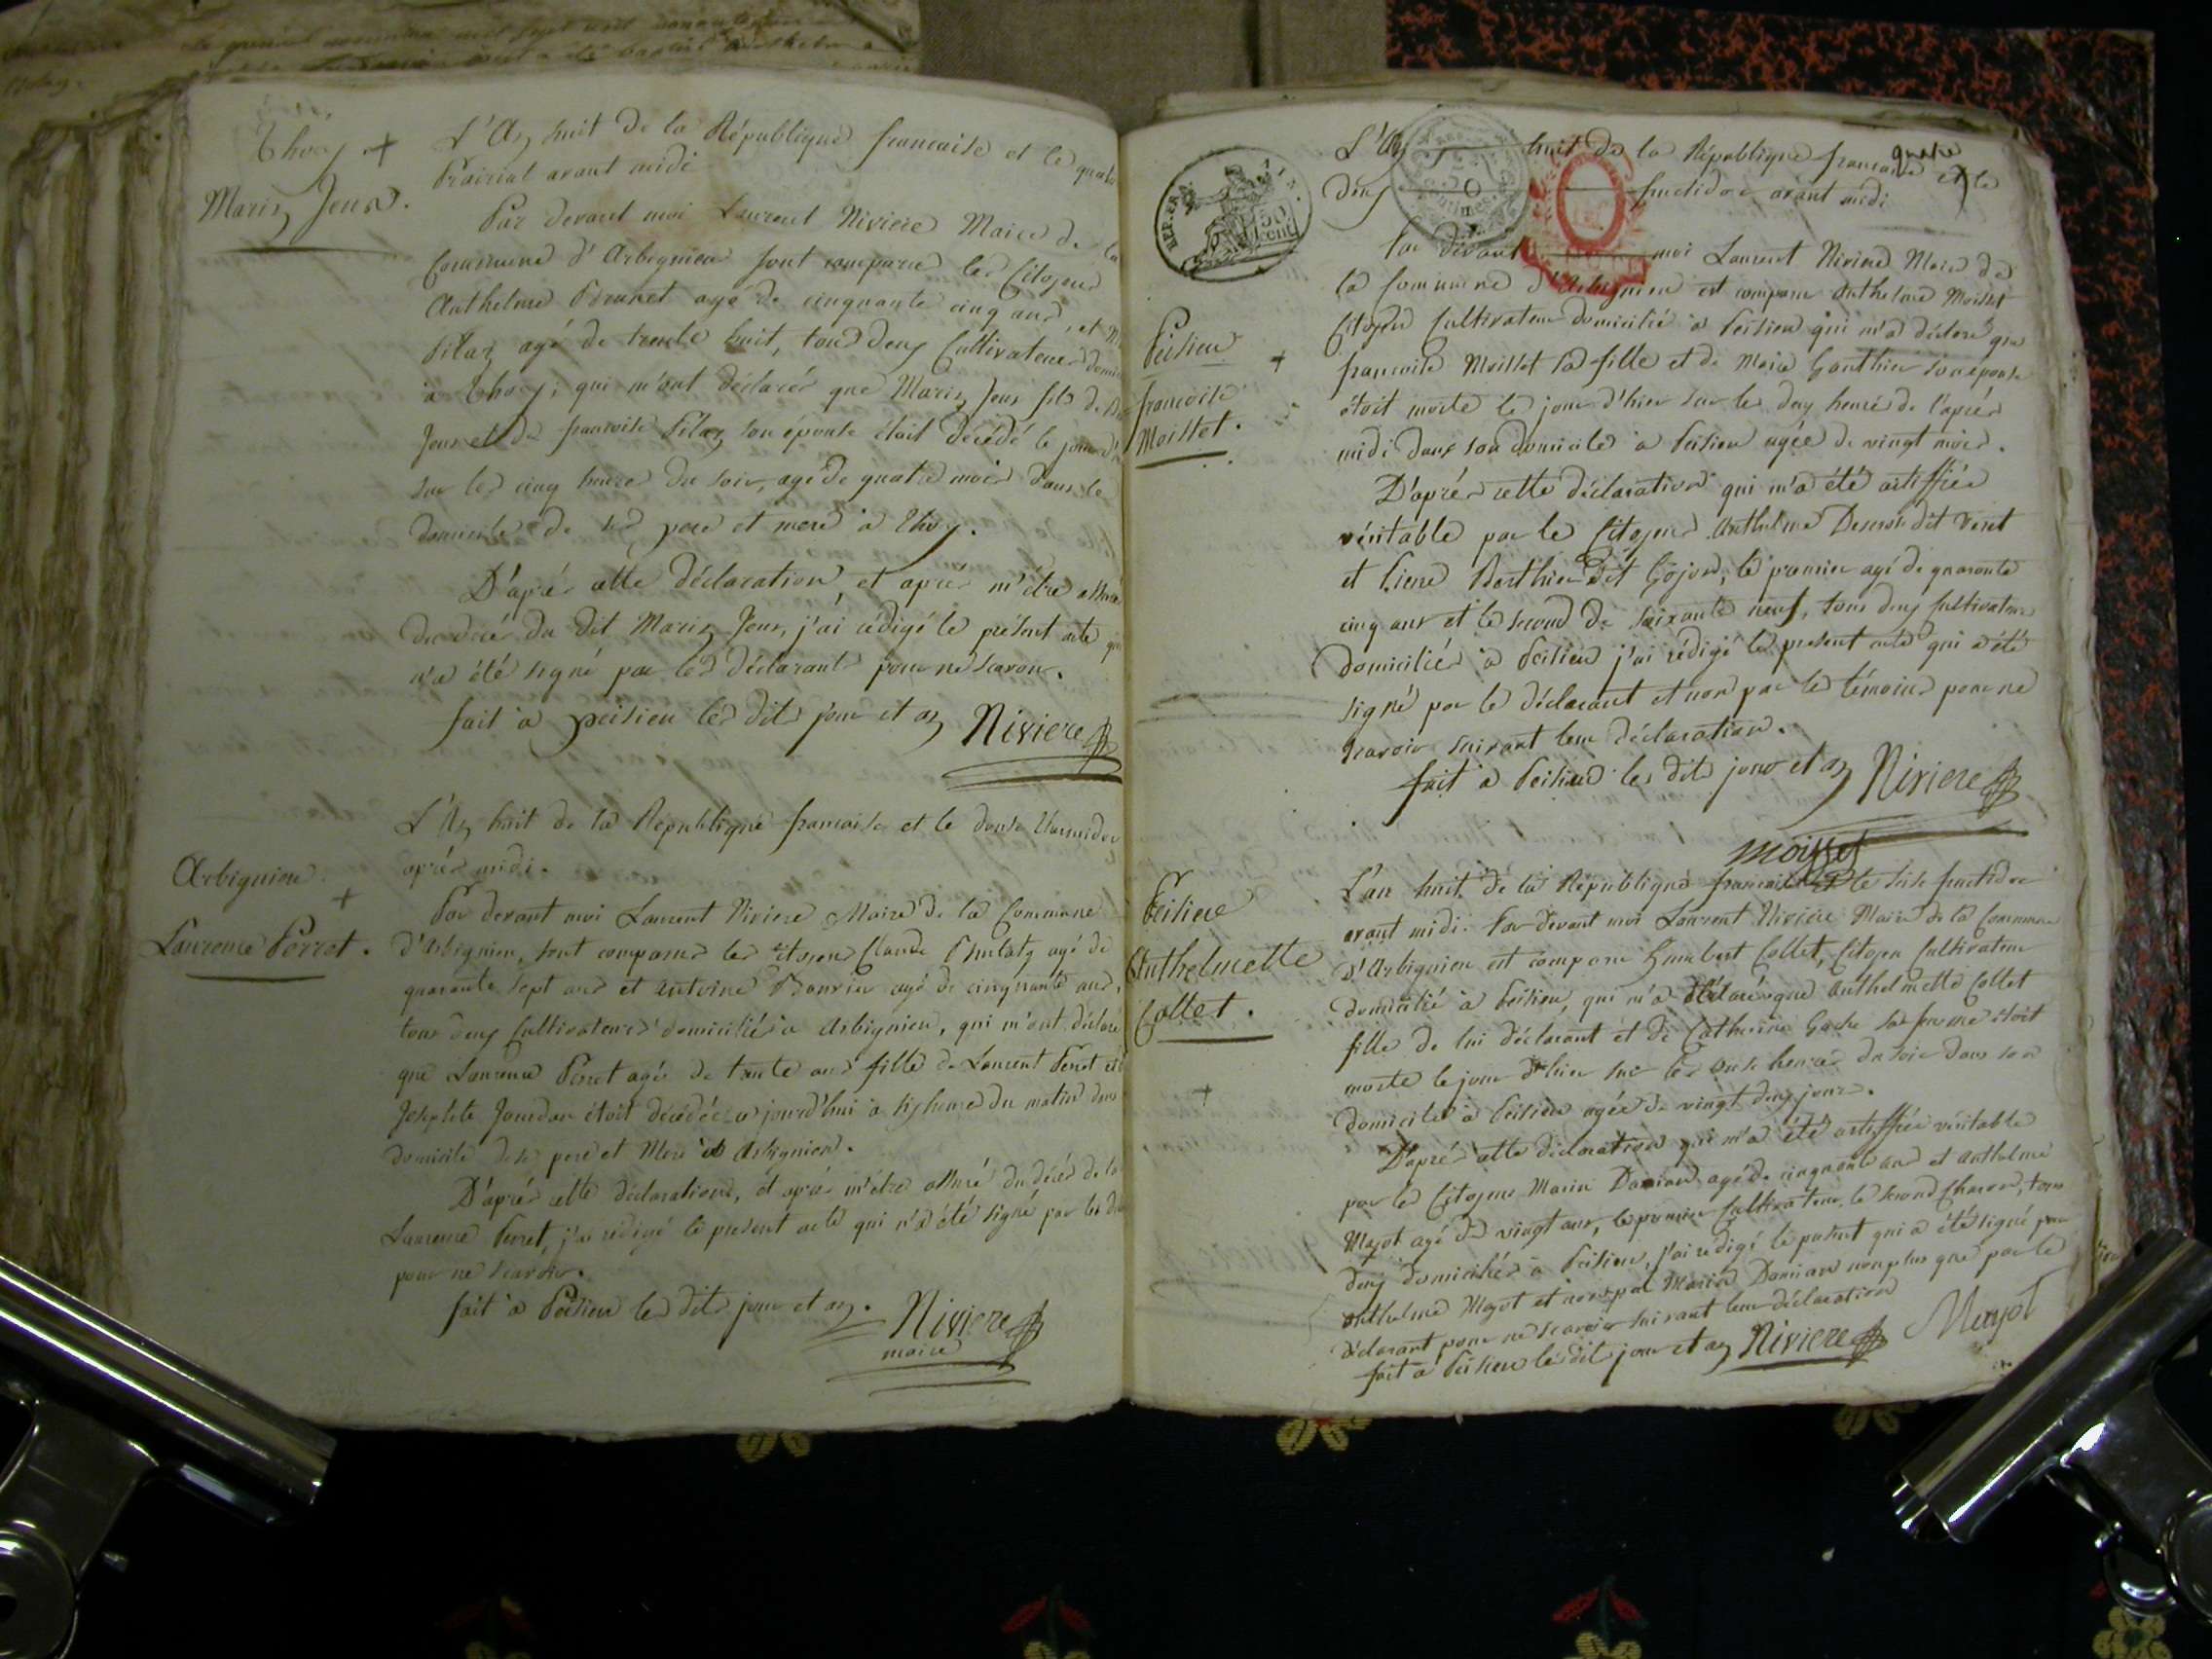 Thoy +
Marin Jeux.
L'An huit de la République francaise et le quatre
Prairial avant midi
Par devant moi Laurent Niviere Maire de la
Commune d'Arbignieu sont comparus les Citoyens
Anthelme Brunet agé de cinquante cinq ans, et
Pilaz agé de trente huit, tous deux Cultivateurs
à Thoy; qui m'ont déclarés que Marin Jeux fils de
Jeux et de francoise Pilaz son épouse étoit décédé le jour d'
sur les cinq heures du soir, agé de quatre mois dans le
domicile de ses pere et mere à Thoy.
D'après cette déclaration, et après m'être assuré
du décès du dit Marin Jeux, j'ai rédigé le présent acte
n'a été signé par les déclarants pour ne scavoir.
fait à peisieu les dits jour et an Niviere
Arbignieu +
Laurence Perret.
L'An huit de la République francaise et le douze thermidor
après midi.
Par devant moi Laurent Niviere Maire de la Commune
d'Arbignieu, sont comparus les citoyens Claude agé de
quarante sept ans et Antoine agé de cinquante ans,
tous deux Cultivateurs domiciliés à Arbignieu, qui m'ont déclaré
que Laurence Perret agée de trente ans fille de Laurent Perret et
Josephte Jourdan étoit décédée a jourd'hui à six heures du matin dans
domicile de ses pere et Mere à Arbignieu.
D'après cette déclaration, et après m'être assuré du décès de la
Laurence Perret, j'ai rédigé le present acte qui n'a été signé par les
pour ne scavoir.
fait à Peisieu les dits jour et an. Niviere
maire
REP. FRA.
50
cent
L'An huit de la République francaise et le quatre
deux fructidor avant midi
Par devant moi Laurent Niviere Maire de
la Commune d'Arbignieu est comparu Anthelme Moisset
Citoyen Cultivateur domicilié à Peisieu qui m'a déclaré que
francoise Moisset sa fille et de Marie Gonthier son épouse
étoit morte le jour d'hier sur les deux heures de l'après
midi dans son domicile à Peisieu agée de vingt mois.
Peisieu +
francoise
Moisset.
D'après cette déclaration qui m'a été certiffiée
véritable par les Citoyens Anthelme dit
et Pierre Berthier dit Gojon, le premier agé de quarante
cinq ans et le second de soixante neuf, tous deux cultivateurs
domiciliés à Peisieu j'ai rédigé le present acte qui a été
signé par le déclarant et non par les témoins pour ne
scavoir suivant leur déclaration.
fait à Peisieu les dits jour et an Niviere
moisset
Peisieu
Anthelmette
Collet.
+
L'an huit de la République francaise et le seize fructidor
avant midi. Par devant moi Laurent Niviere Maire de la Commune
d'Arbignieu est comparu Humbert Collet, Citoyen Cultivateur
domicilié à Peisieu, qui m'a déclaré que Anthelmette Collet
fille de lui déclarant et de Catherine Gache sa femme étoit
morte le jour d'hier sur les onze heures du soir dans son
domicile à Peisieu agée de vingt deux jours.
D'après cette déclaration qui m'a été certiffiée véritable
par les Citoyens Marin Damian agé de cinquante ans et Anthelme
Mazot agé de vingt ans, le premier Cultivateur le second Charon, tous
deux domiciliés à Peisieu, j'ai rédigé le présent qui a été signé par
Anthelme Mazot et non par Marin Damian non plus que par le
déclarant pour ne scavoir suivant leur déclaration
fait à Peisieu les dits jour et an Niviere Mazot